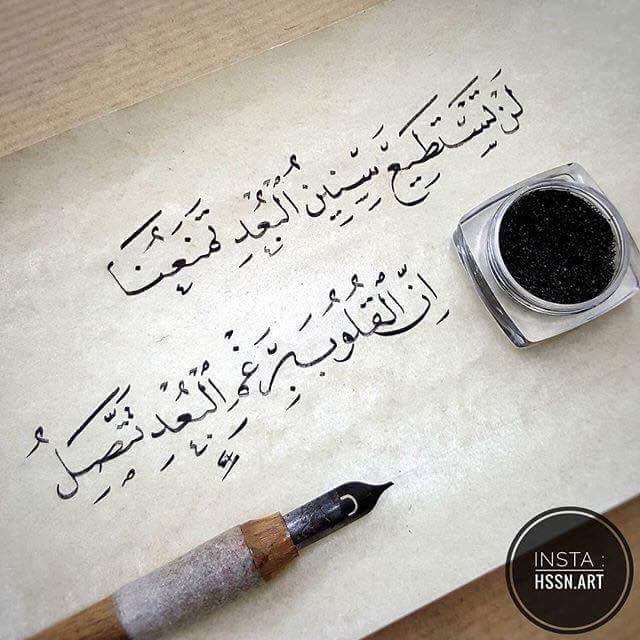 لَنْ تَسْتَطِيعَ سِنِينُ الْبُعْدِ تَمْنَعُنَا
اِنَّ الْقُلُوبَ بِرَغْمِ الْبُعْدِ تَتَّصِلُ
INSTA :
HSSN.ART